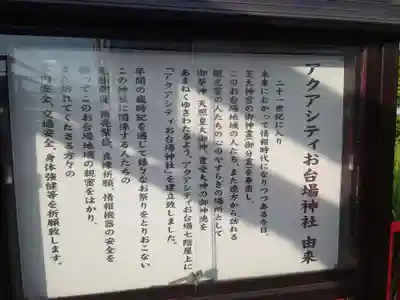 アクアシティお台場神社 由来
二十一世紀に入り
未来にむかって情報時代になりつつある今日、
芝大神宮の御神霊(御分霊)を奉戴し、
このお台場地域の人たち、また遠方から訪れる
観光客の人たちの心のやすらぎの場所として
御祭神 天照皇大御神、豊受大神の御神徳を
あまねくゆきわたるよう、アクアシティお台場七階屋上に
「アクアシティお台場神社」を建立致しました。
年間の歳時記を通して様々なお祭りをとりおこない
この神社に関係する人たちの
商売繁昌、良縁祈願、情報機器の安全を
このお台場地域の親密をはかり、
訪れてくださる方々の
安全、交通安全、身体強健等を祈願致します。